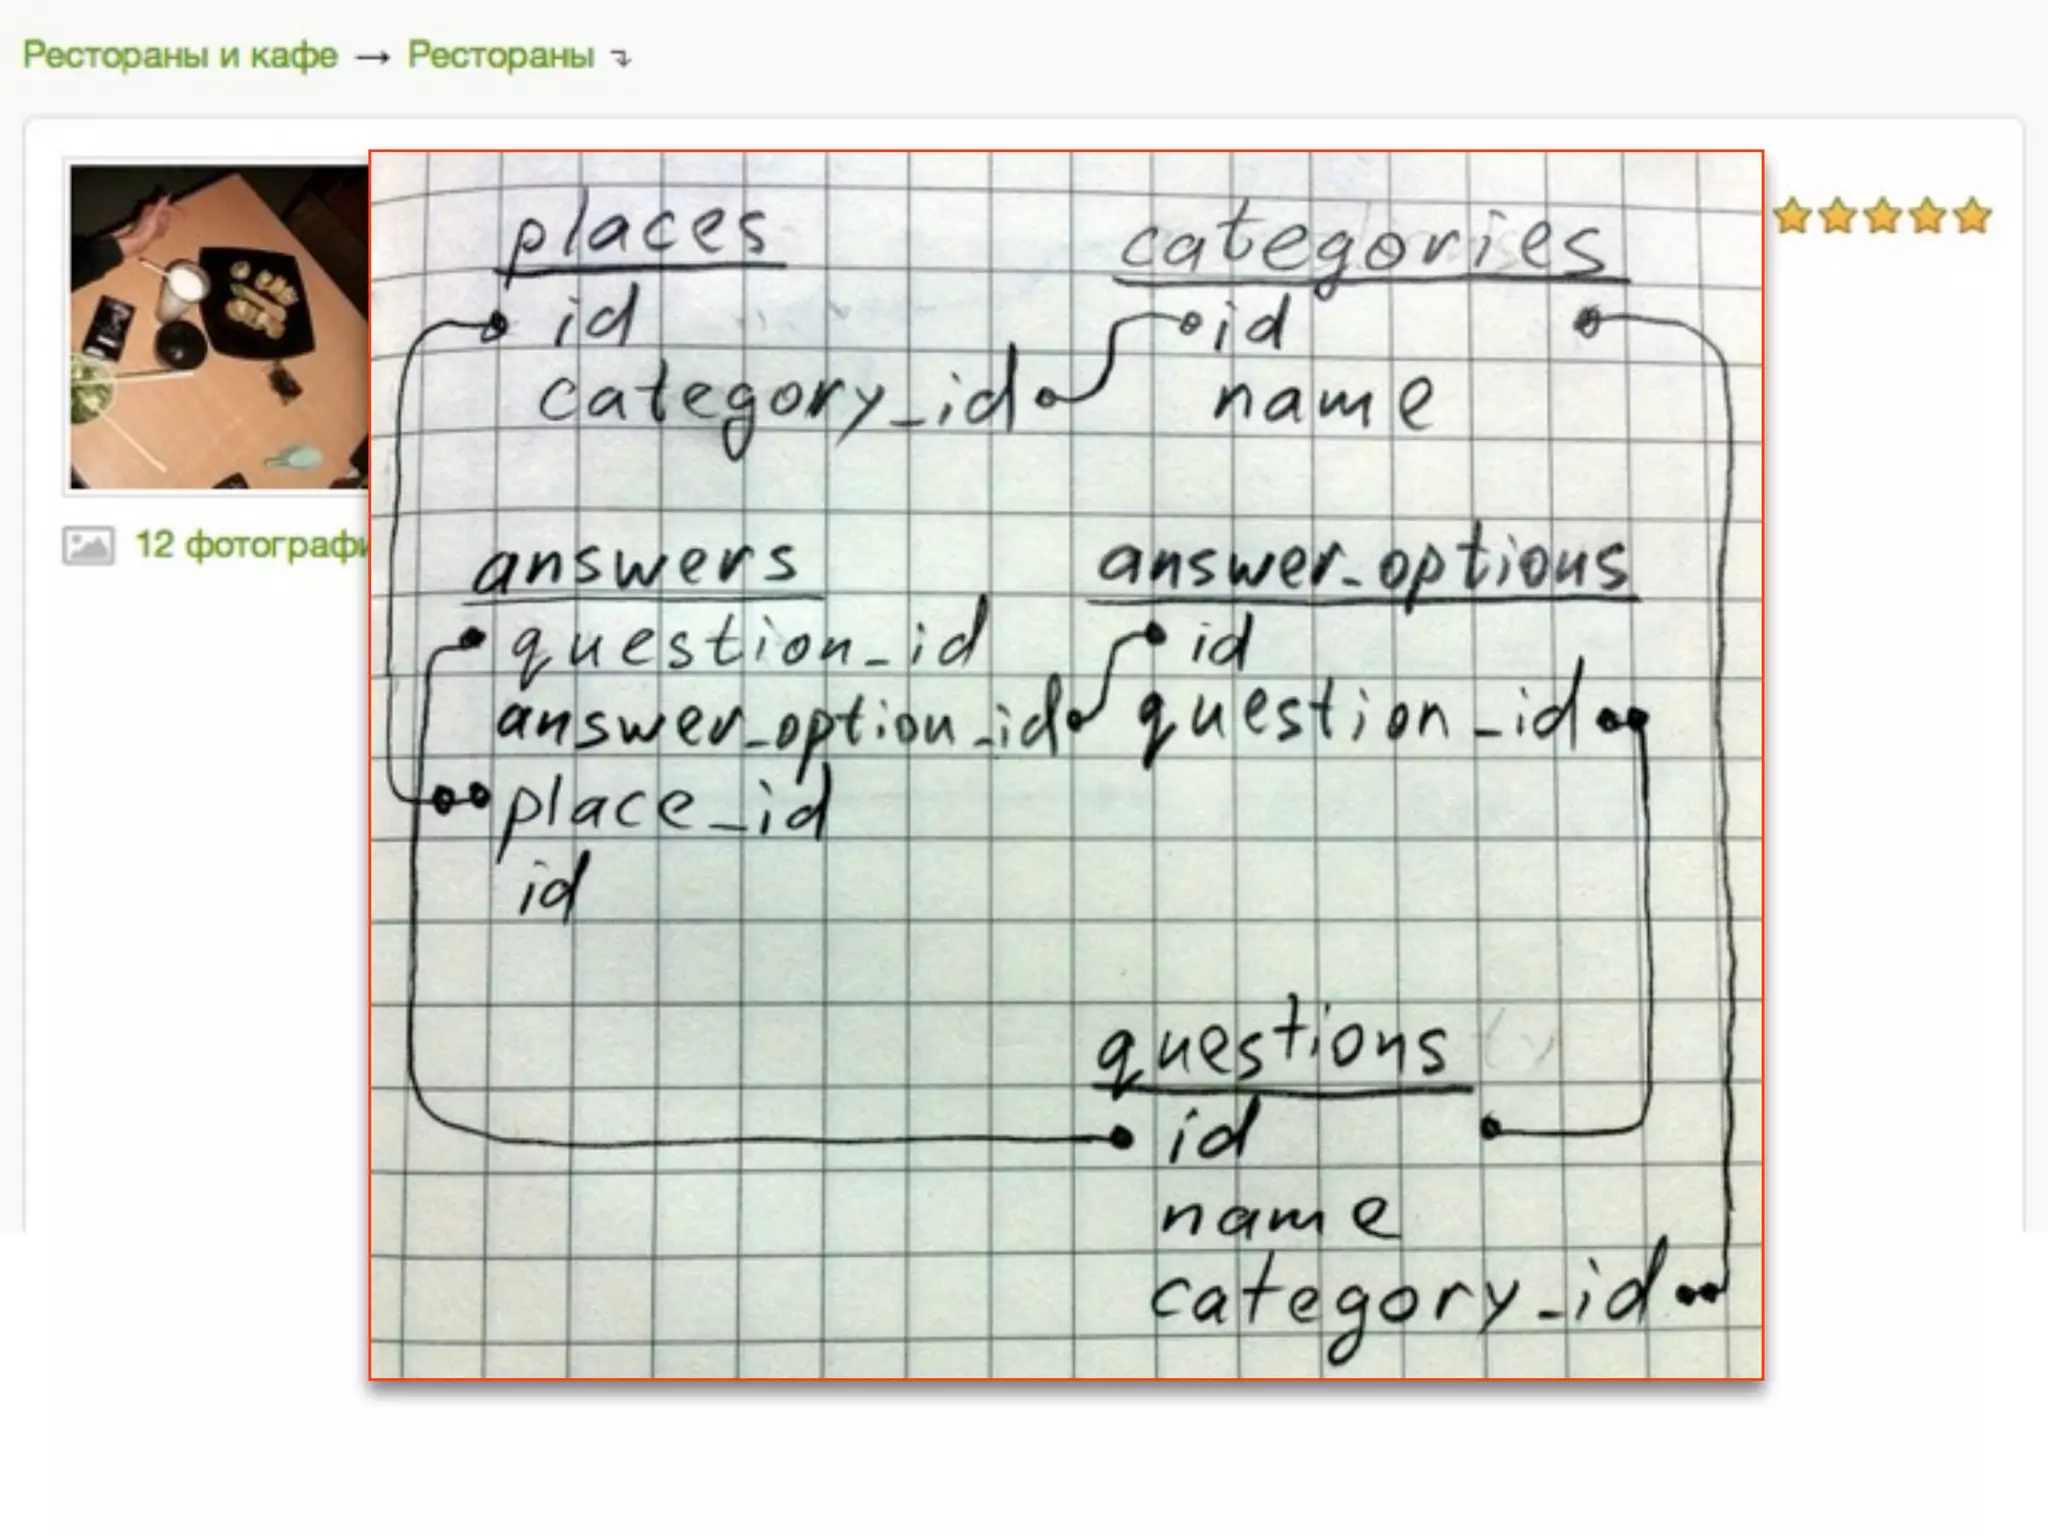 Рестораны и кафе → Рестораны
places
id
category_id
categories
id
name
12 фотографи
answers
question_id
answer_option_id
place_id
id
answer_options
id
question_id
questions
id
name
category_id